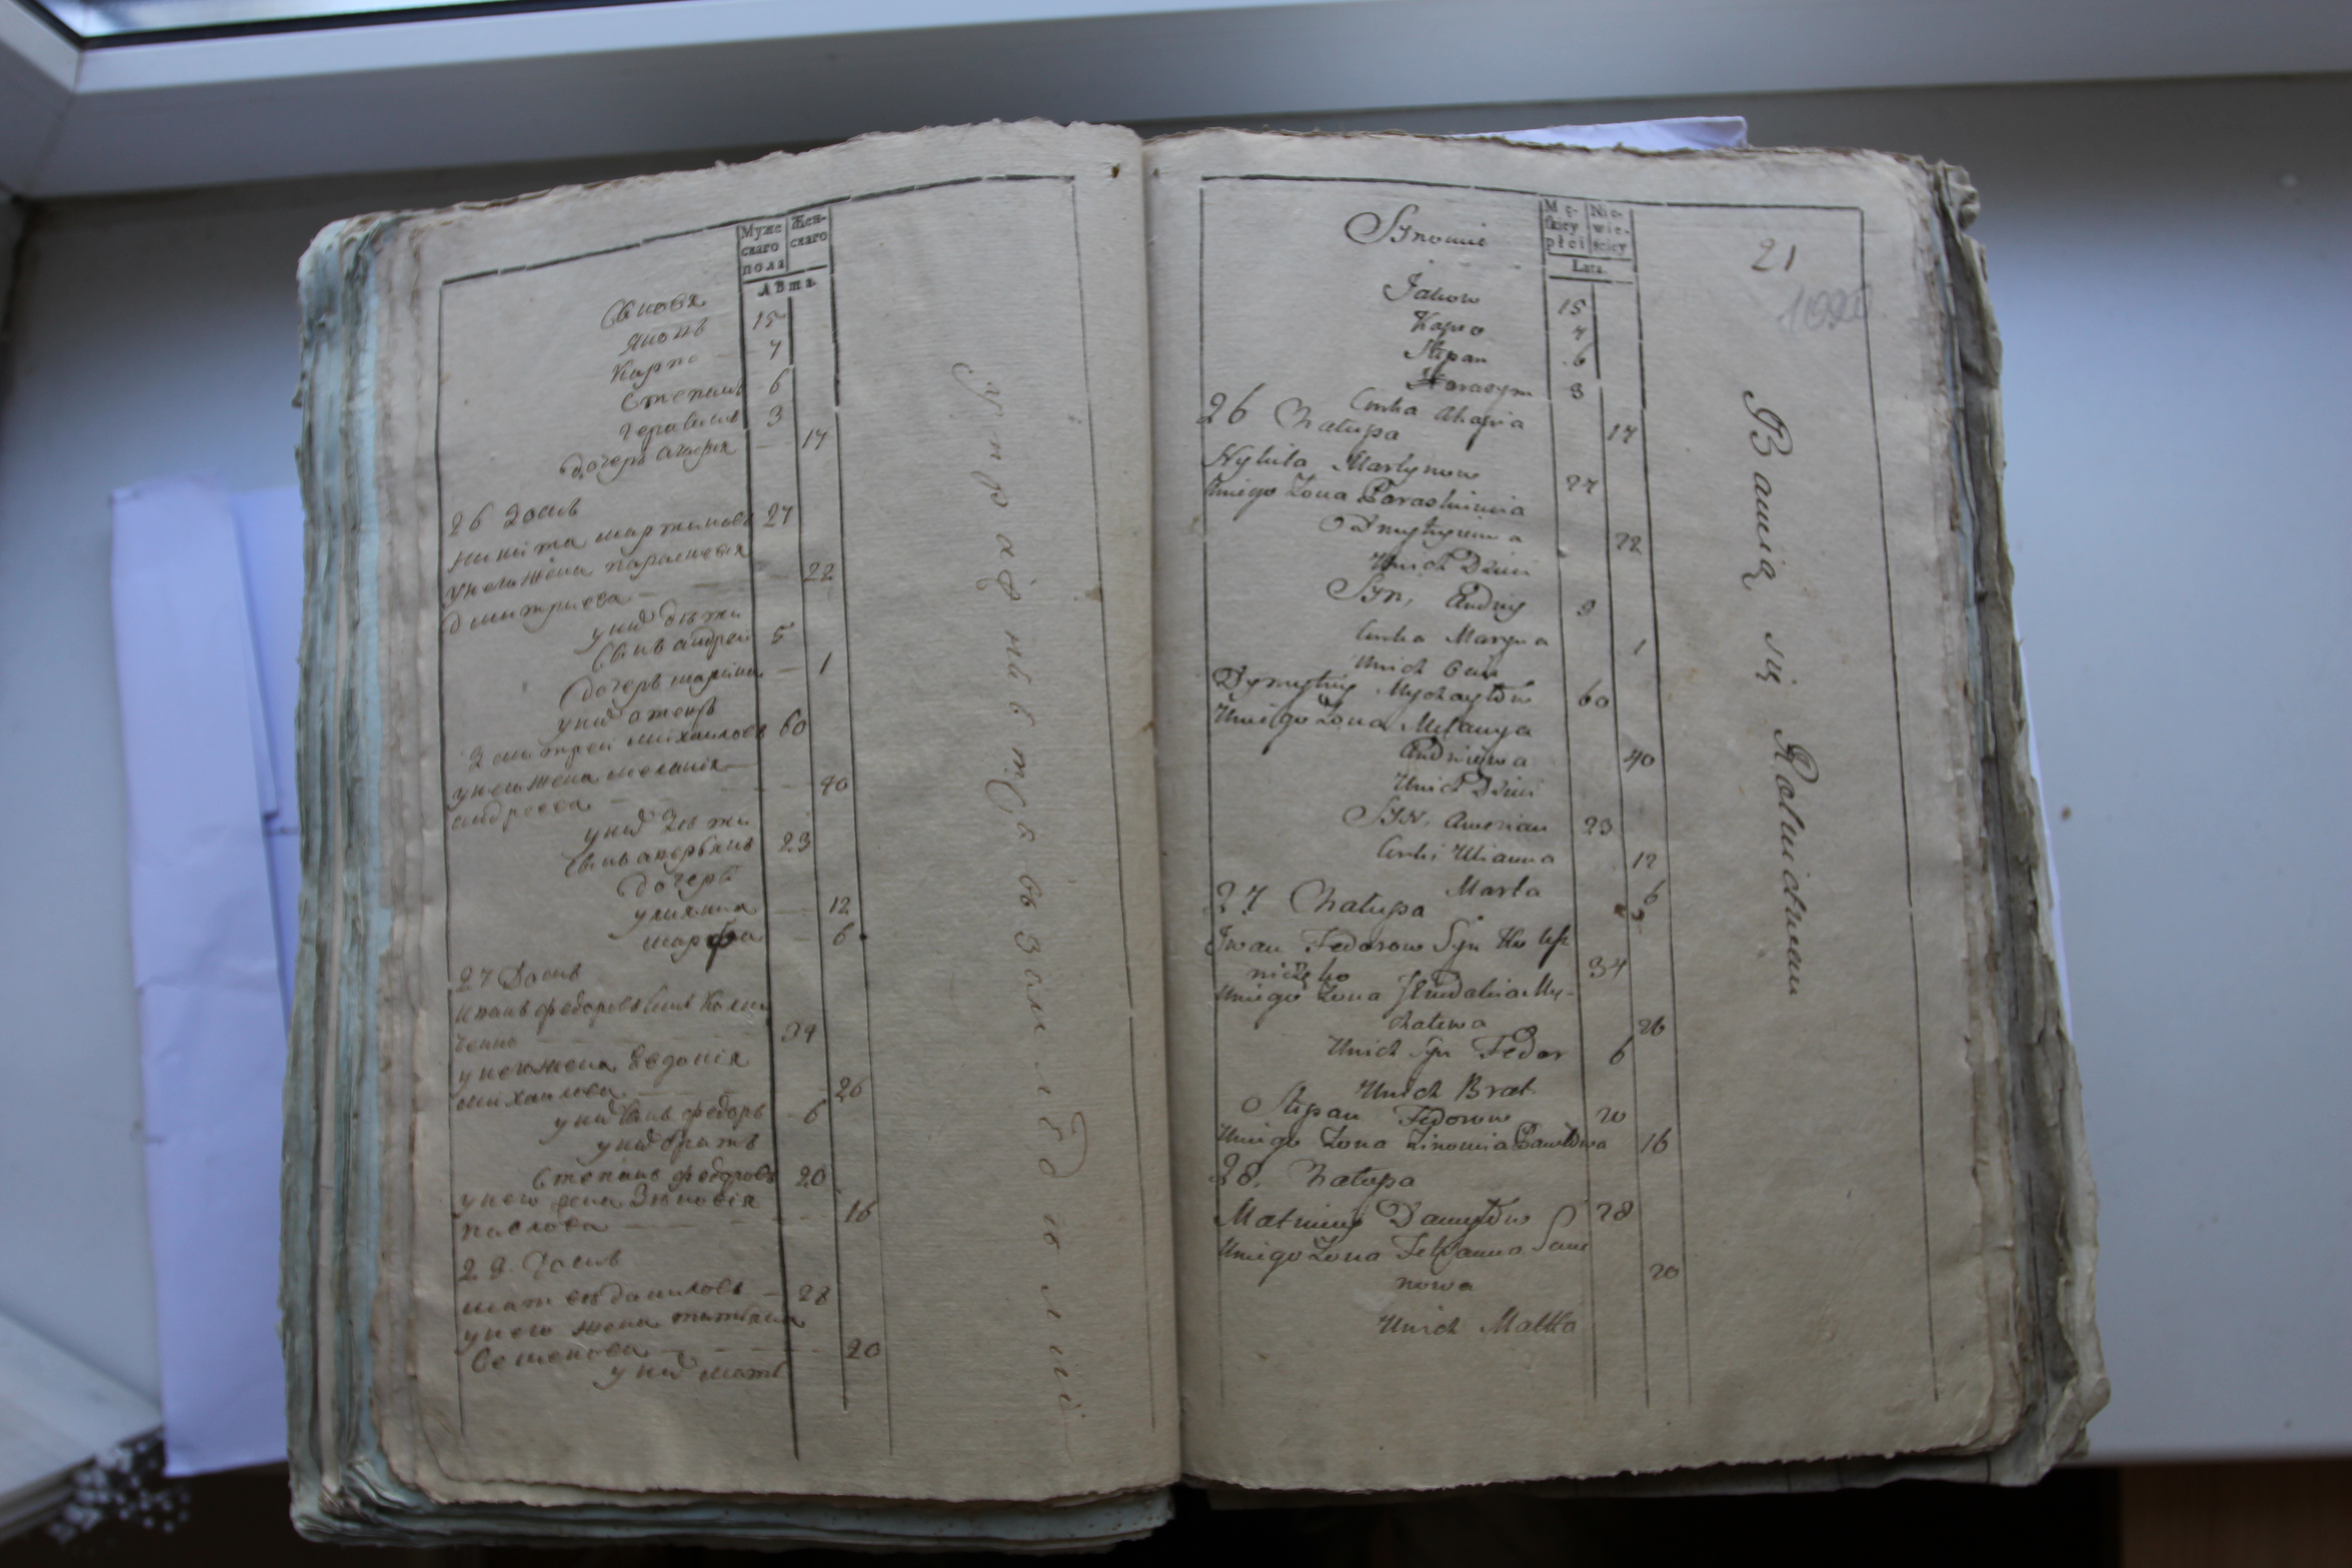 Муже
скаго
пола
Жен-
скаго
Лѣта
Сыновья
Яковъ 15
Карпо 7
Степанъ 6
Герасимъ 3
дочерь агафия 17
26 Домъ
никита мартиновъ 27
унего жена парасковья
дмитриева 22
уних дѣти
Сынъ андрей 5
дочерь марина 1
уних отецъ
Дмитрей михайловъ 60
унего жена мелания
андреева 40
уних дѣти
Сынъ аверьянъ 23
дочери
улияна 12
марфа 6
27 Домъ
иванъ федоровъ Сынъ
34
унего жена Евдокия
михайлова 26
уних Сынъ федоръ 6
уних братъ
Степанъ федоровъ 20
унего жена Зиновия
павлова 16
28 Домъ
матвей даниловъ 28
унего жена татьяна
Семенова 20
уних мать
упражняется въ земледелии
21
Synowie
Mę-
skiey
płci
Nie-
wie-
sciey
Lata.
Jakow 15
Karpo 7
Stepan 6
Harasym 3
Curka Ahafia 17
26 Chałupa
Nykita Martynow 27
Uniego Zona Paraskiewia
Dmytryiewa 22
Unich Dzieci
Syn, Andrey 5
Curka Maryna 1
Unich Ociec
Dymytrey Mychayłow 60
Uniego Zona Melanya
Andreiewa 40
Unich Dzieci
Syn, Awerian 23
Curki Ulianna 12
Marta 6
27 Chałupa
Iwan Fedorow Syn
34
Uniego Zona Jewdokia My-
chałowa 26
Unich Syn Fedor 6
Unich Brat
Stepan Fedorow 20
Uniego Zona Zinowia Pawłowa 16
28. Chałupa
Matwiey Danyłow S 28
Uniego Zona Tetianna Seme
nowa 20
Unich Matka
Bawią się Rolnictwem